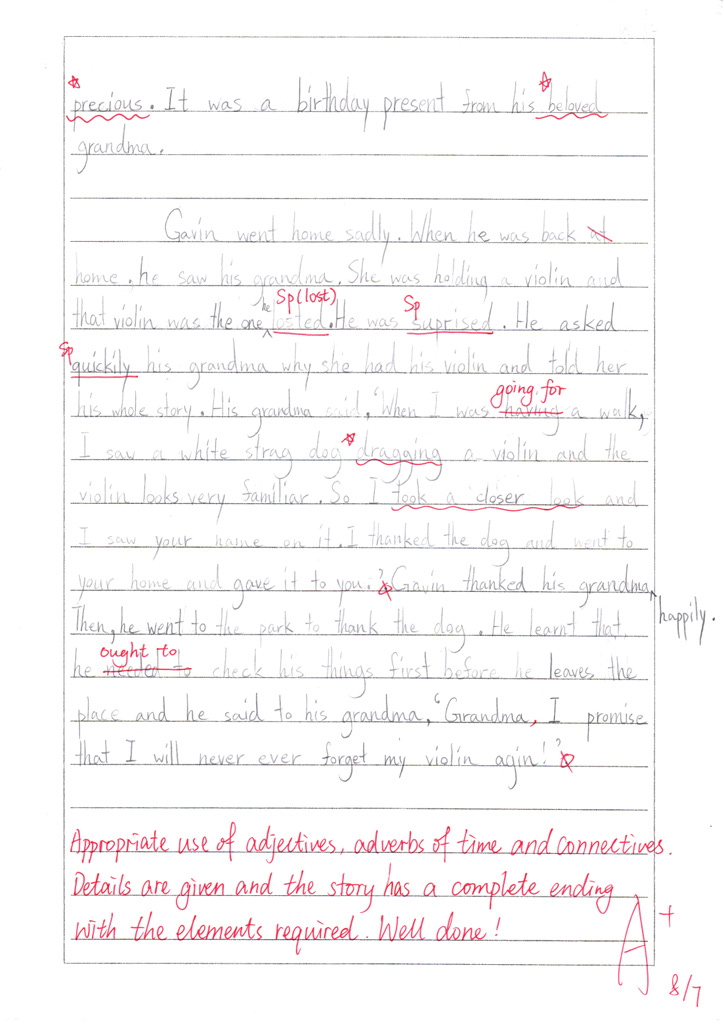 precious. It was a birthday present from his beloved
grandma.
Gavin went home sadly. When he was back at
home, he saw his grandma. She was holding a violin and
Sp(lost) Sp
that violin was the one he losted. He was suprised. He asked
Sp quickily his grandma why she had his violin and told her
going for
his whole story. His grandma said, 'When I was having a walk,
I saw a white strag dog dragging a violin and the
violin looks very familiar. So I took a closer look and
I saw your name on it. I thanked the dog and went to
your home and gave it to you.' Gavin thanked his grandma happily.
Then, he went to the park to thank the dog. He learnt that
ought to
he needed to check his things first before he leaves the
place and he said to his grandma, 'Grandma, I promise
that I will never ever forget my violin agin!'
Appropriate use of adjectives, adverbs of time and connectives.
Details are given and the story has a complete ending
with the elements required. Well done!
A+
8/7